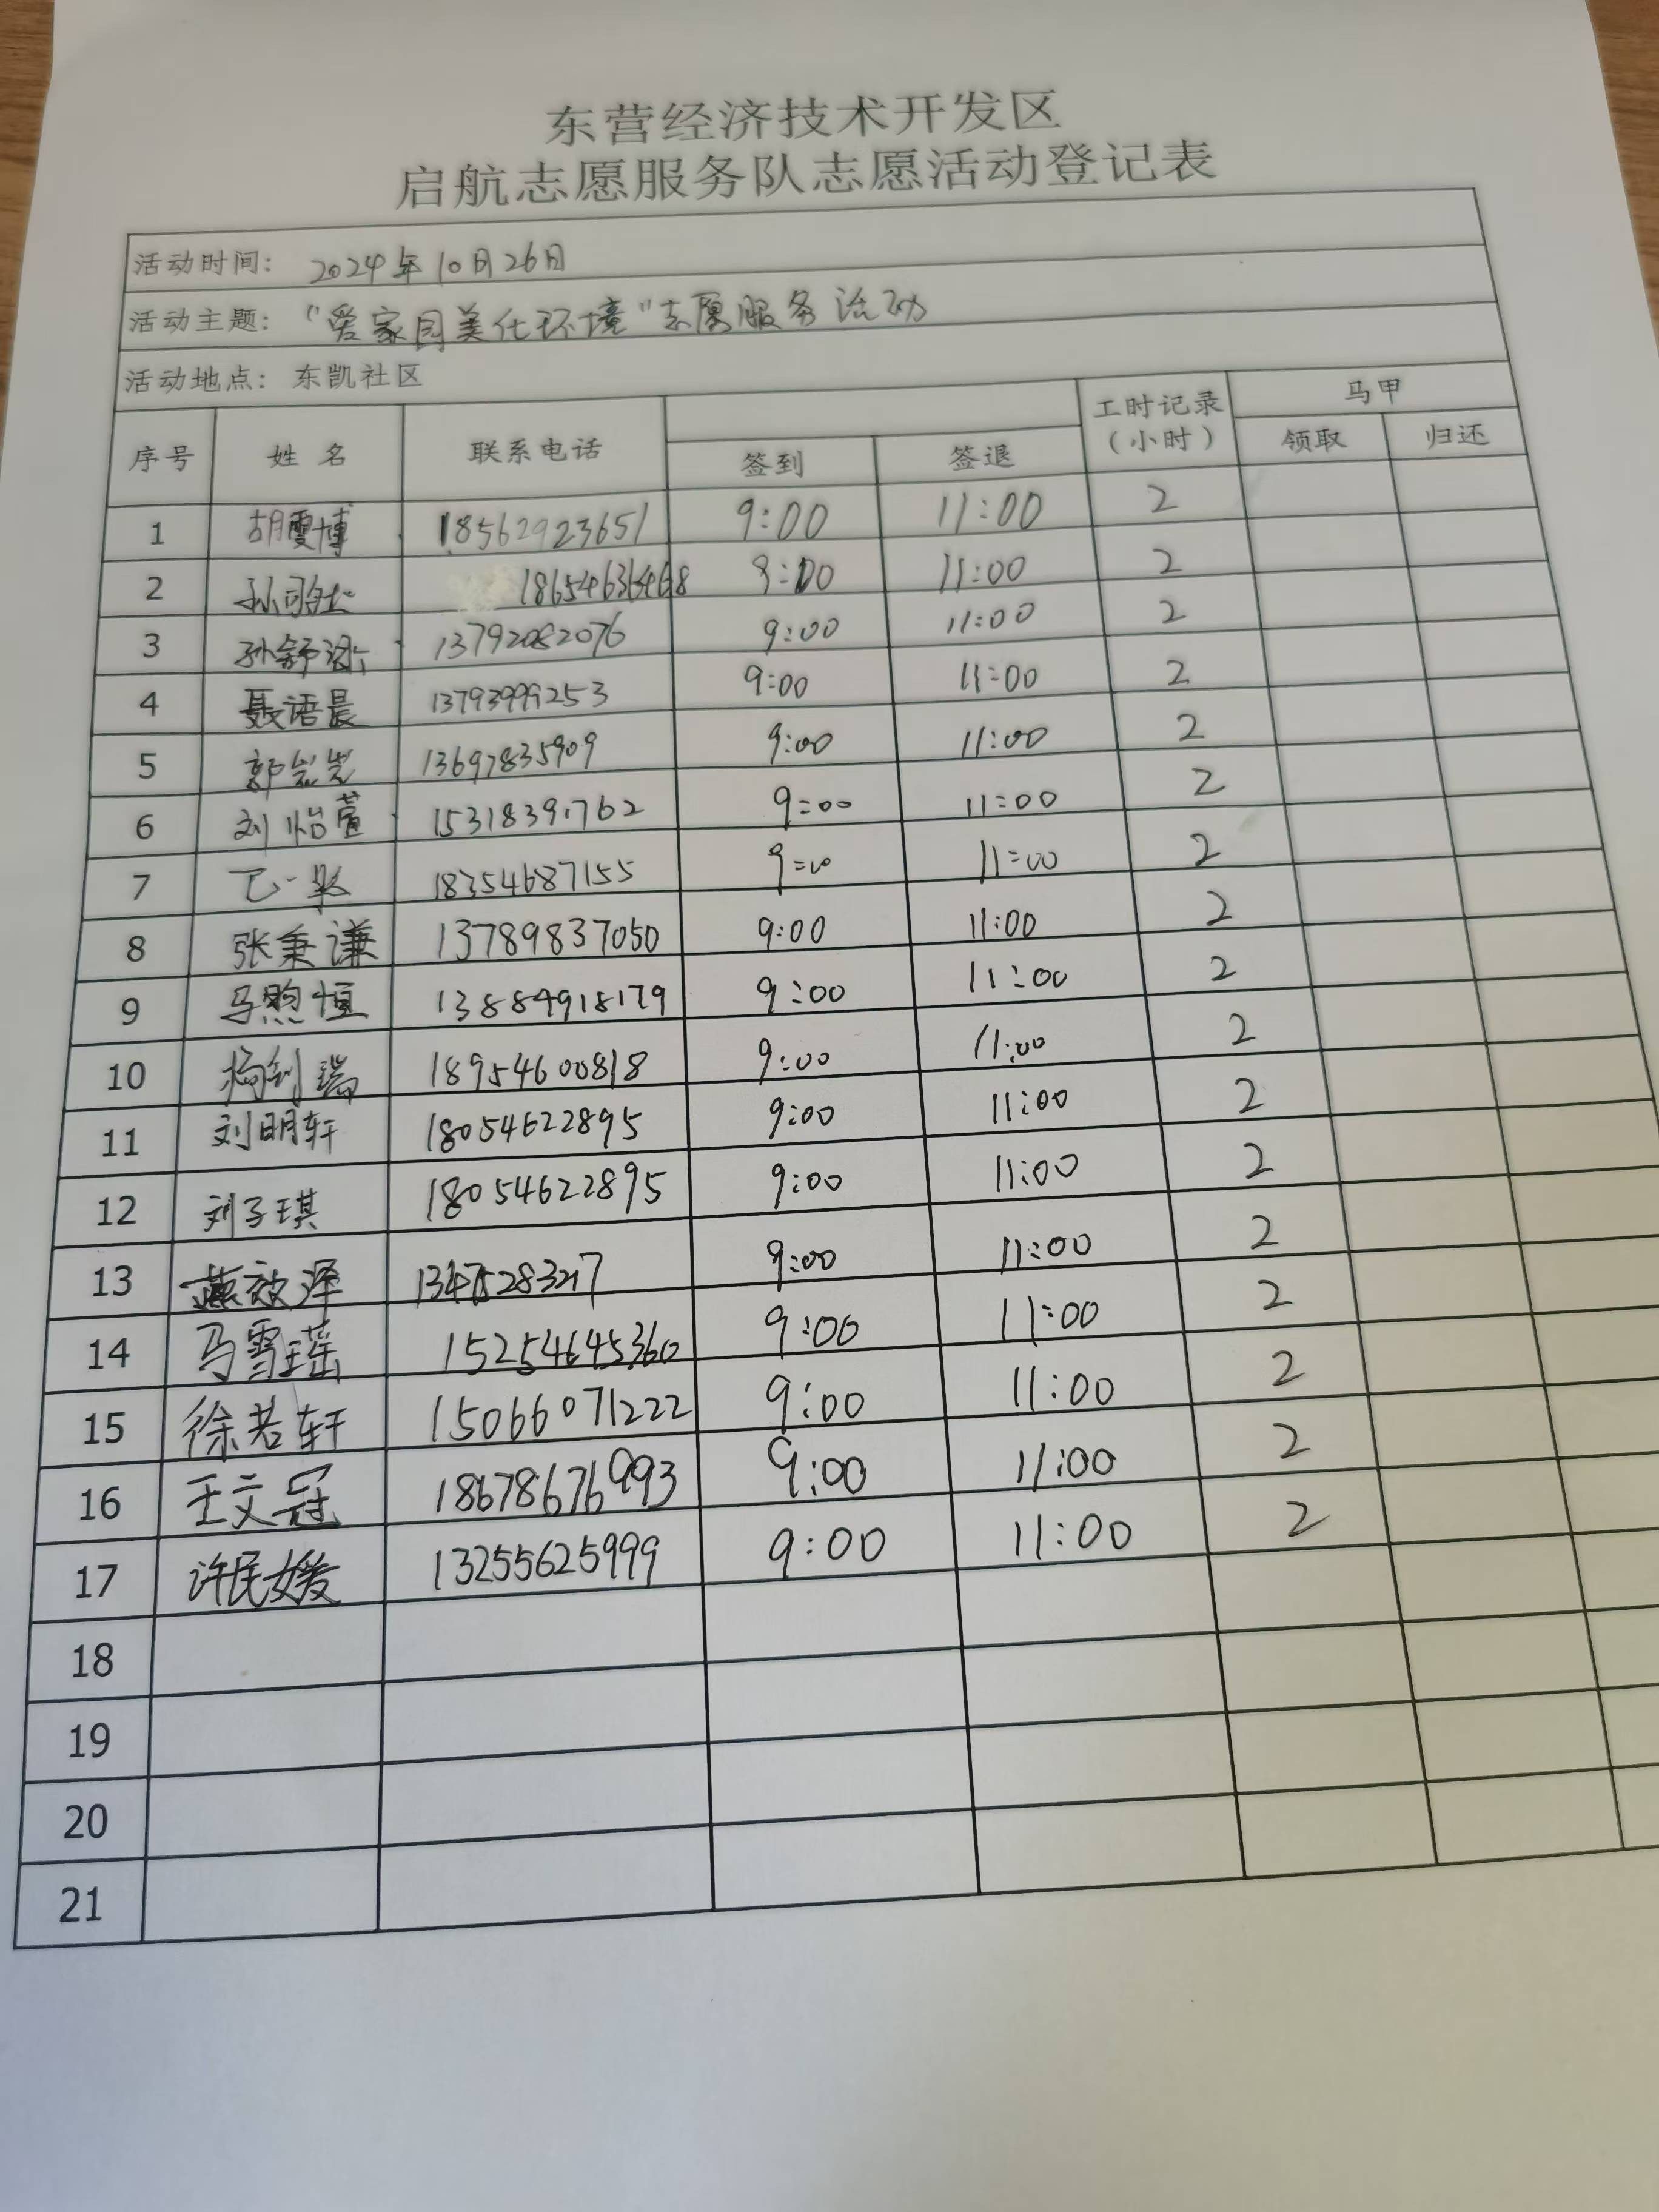 东营经济技术开发区
启航志愿服务队志愿活动登记表
活动时间: 2024年10月26日
活动主题: "爱家园美化环境"志愿服务活动
活动地点: 东凯社区
序号 姓名 联系电话 签到 签退 工时记录(小时) 马甲 领取 归还
1 胡雯博 18562923651 9:00 11:00 2
2 孙 18654636468 9:00 11:00 2
3 孙舒涵 13792082076 9:00 11:00 2
4 聂语晨 13793999253 9:00 11:00 2
5 郭 13697835909 9:00 11:00 2
6 刘怡萱 15318391762 9:00 11:00 2
7 18354687155 9:00 11:00 2
8 张秉谦 13789837050 9:00 11:00 2
9 马煦恒 13884918179 9:00 11:00 2
10 杨钊瑞 18954600818 9:00 11:00 2
11 刘明轩 18054622895 9:00 11:00 2
12 刘子琪 18054622895 9:00 11:00 2
13 燕效泽 9:00 11:00 2
14 马雪瑶 15254645360 9:00 11:00 2
15 徐若轩 15066071222 9:00 11:00 2
16 王文冠 18678676993 9:00 11:00 2
17 许民媛 13255625999 9:00 11:00 2
18
19
20
21